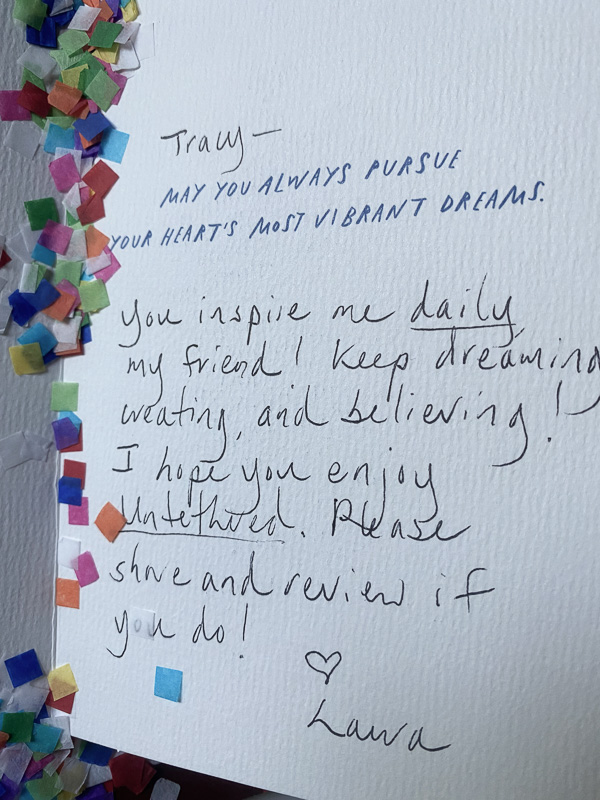 Tracy—
MAY YOU ALWAYS PURSUE
YOUR HEART'S MOST VIBRANT DREAMS.
You inspire me daily,
my friend! Keep dreaming
creating, and believing!
I hope you enjoy
Untethered. Please
share and review if
you do!
♡
Laura